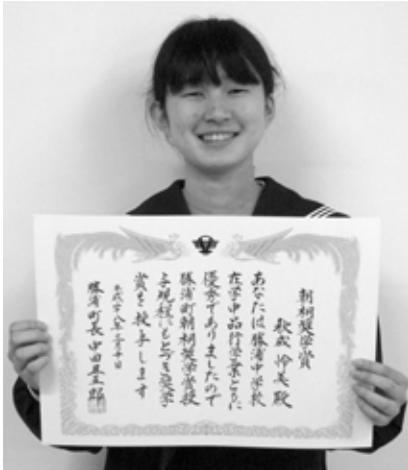 朝桐奨学賞
歌成怜美殿
あなたは勝浦中学校
在学中品行学業ともに
優秀でありましたので
勝浦町朝桐奨学賞授
与規程にもとづき奨学
賞を授与します
平成十八年三月十日
勝浦町長中田丑五郎